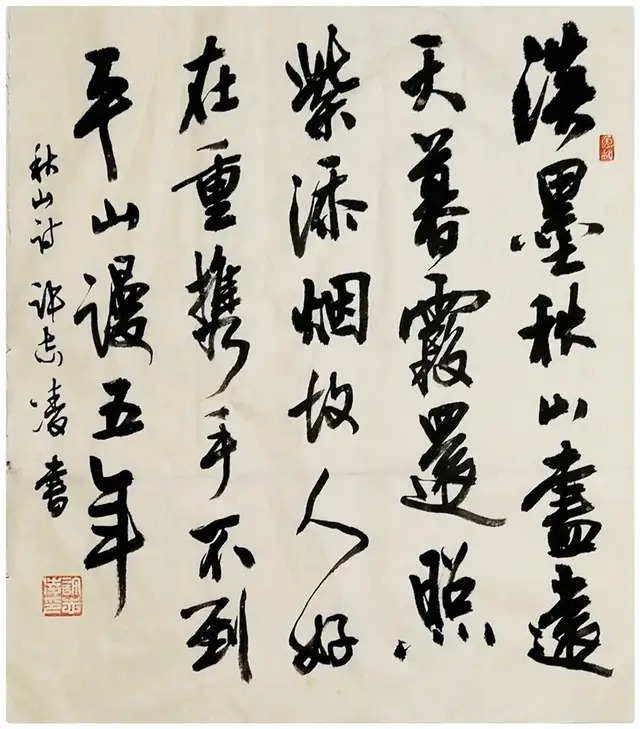 淡墨秋山畫遠
天暮霞還照
紫添烟故人好
在重携手不到
平山谩五年
秋山诗 许志凌書